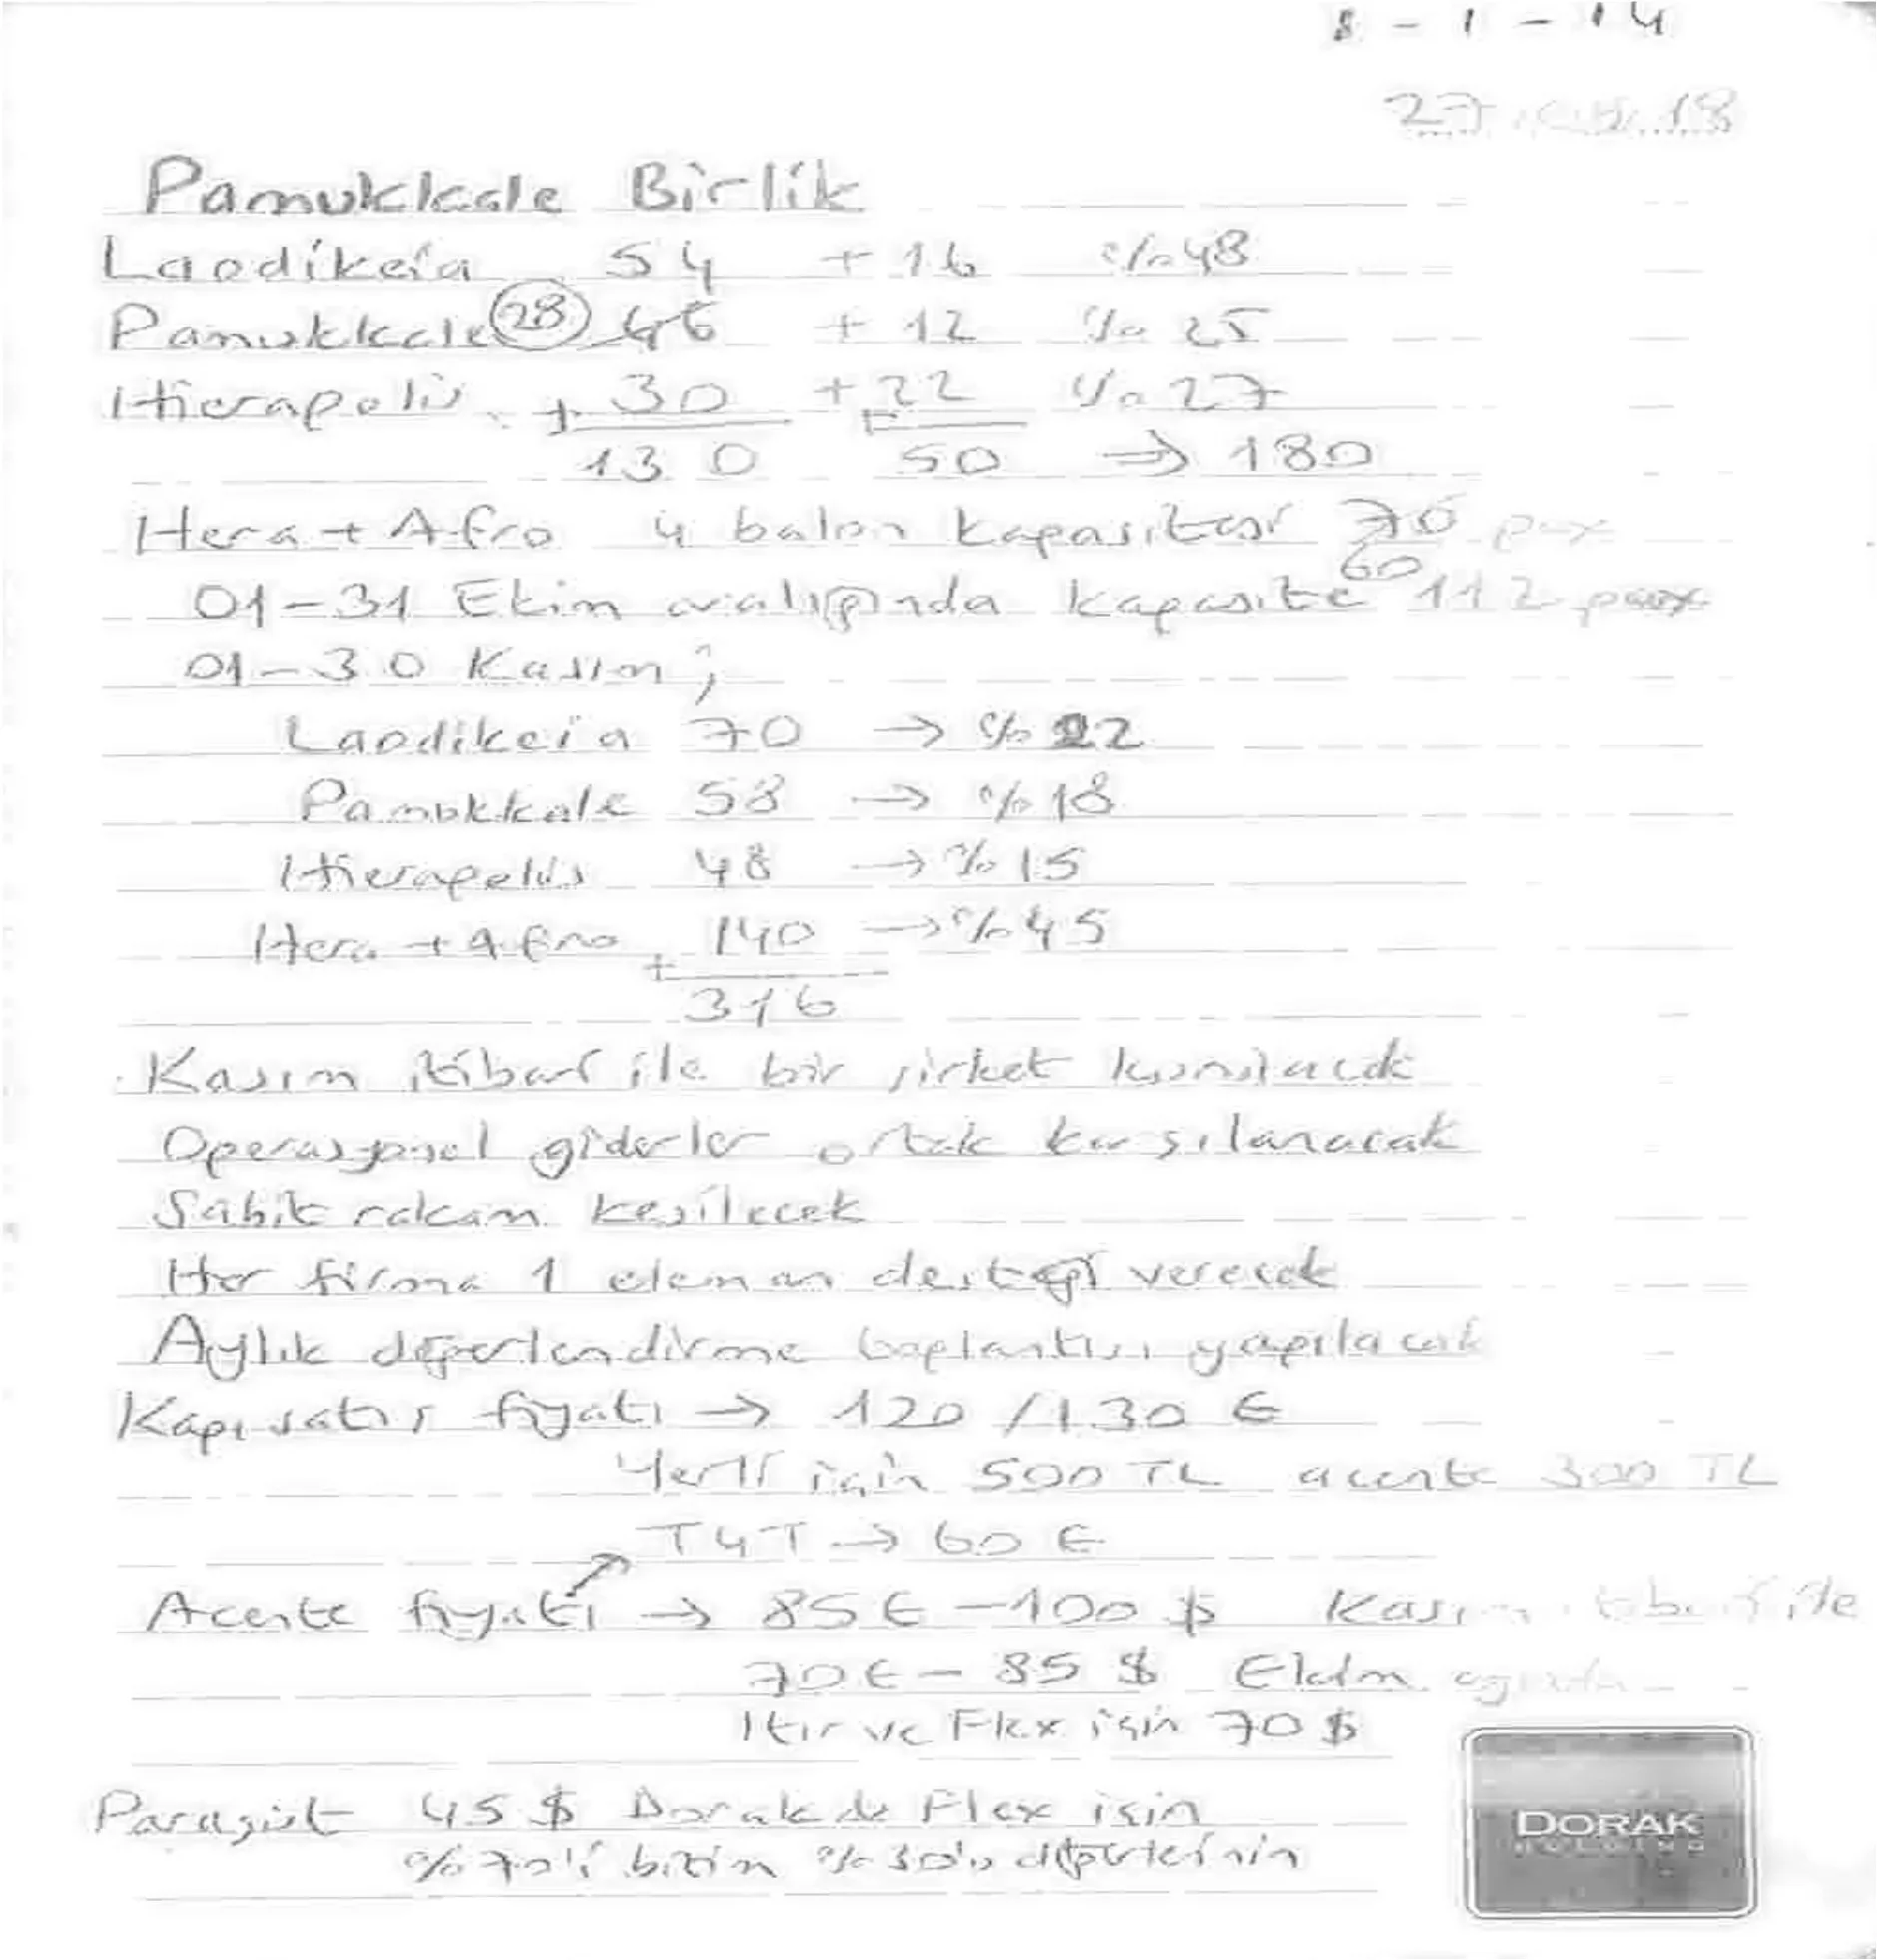 8 - 1 - 14
27 18
Pamukkale Birlik
Laodikeia 54 + 16 %48
Pamukkale (28) 46 + 12 % 25
Hierapolis + 30 + 22 % 27
130 50 → 180
Hera + Afro 4 balon kapasitesi 70 pax
60
01-31 Ekim aralığında kapasite 112 pax
01-30 Kasım;
Laodikeia 70 → % 22
Pamukkale 58 → % 18
Hierapolis 48 → % 15
Hera + Afro + 140 → % 45
316
Kasım itibari ile bir şirket kurulacak
Operasyonel giderler ortak karşılanacak
Sabit rakam kesilecek
Her firma 1 eleman desteği verecek
Aylık değerlendirme toplantısı yapılacak
Kapı satış fiyatı → 120 / 130 €
Yerli için 500 TL acente 300 TL
T4T → 60 €
Acente fiyatı → 85 € - 100 $ Kasım itibari ile
70 € - 85 $ Ekim ayında
Itır ve Flex için 70 $
Paraşüt 45 $ Dorak de Flex için
% 70'i bizim % 30'u diğerlerinin
DORAK
HOLDING